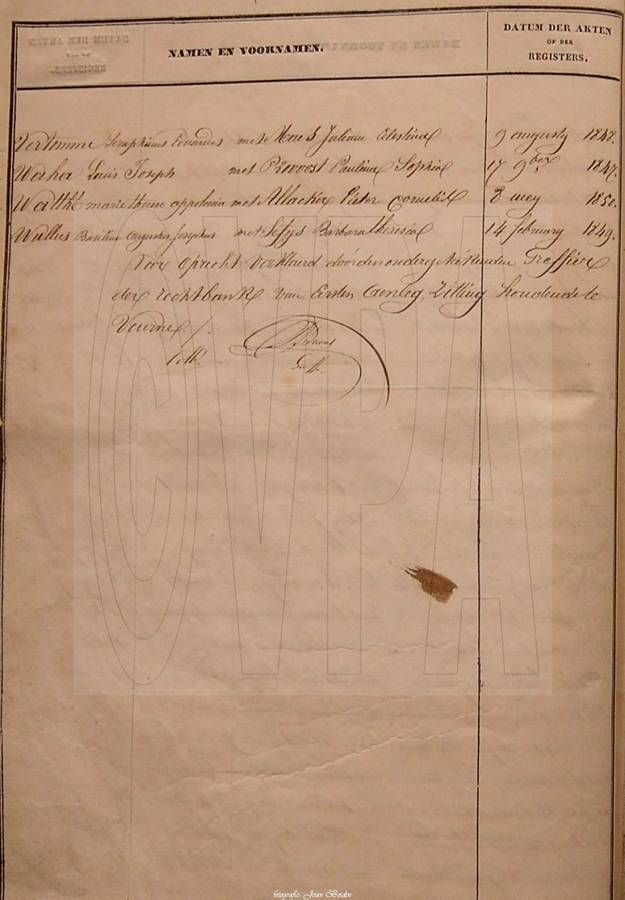 NAMEN EN VOORNAMEN.
DATUM DER AKTEN
OF DER
REGISTERS.
Vertomme Seraphinus Eduardus met Maes Juliana Celestina 9 augusty 1848.
Washer Louis Joseph met Provoost Paulina Sophia 17 9ber 1847.
Watthé marie therese appolonia met Allacker Pieter cornelis 8 mey 1850.
Wullus Basilius augustus Josephus met Sefys Barbara theresia 14 february 1849.
Voor oprecht verklaerd door den ondergeteekenden Greffier
der rechtbank van Eersten Aenleg, Zitting houdende te
Veurne /.
CVPA
fotografie: Jean Bodin